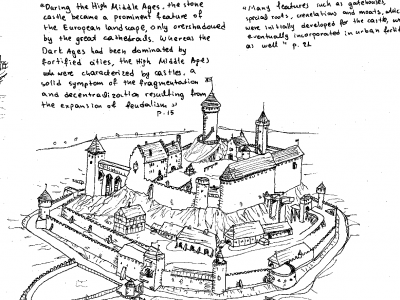 "During the High Middle Ages, the stone
castle became a prominent feature of
the European landscape, only overshadowed
by the great cathedrals. Whereas the
Dark Ages had been dominated by
fortified cities, the High Middle Ages
were characterized by castles, a
solid symbol of the fragmentation
and decentralization resulting from
the expansion of feudalism"
p. 15
"Many features such as gatehouses,
special roofs, crenelations and moats, which
were initially developed for the castle, were
eventually incorporated in urban
as well" p. 21